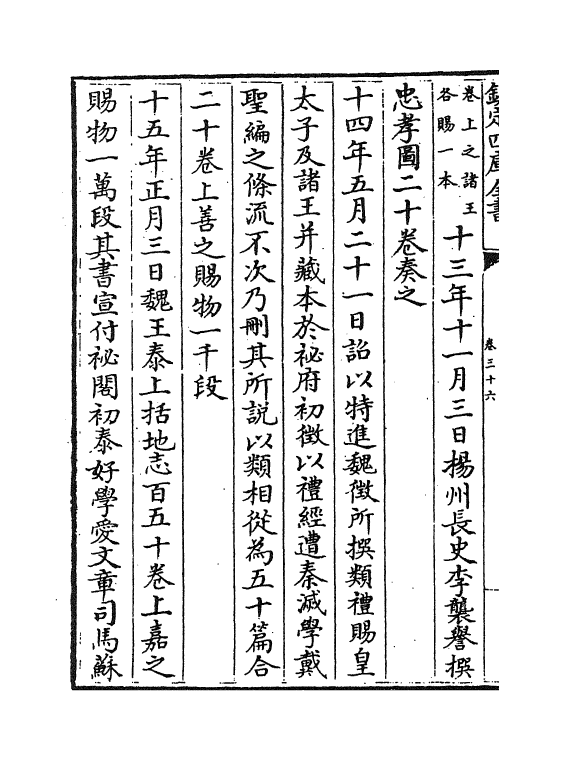 欽定四庫全書
卷三十六
卷上之諸王
各賜一本
十三年十一月三日揚州長史李襲譽撰
忠孝圖二十卷奏之
十四年五月二十一日詔以特進魏徵所撰類禮賜皇
太子及諸王并藏本於祕府初徵以禮經遭秦滅學戴
聖編之條流不次乃刪其所說以類相從為五十篇合
二十卷上善之賜物一千段
十五年正月三日魏王泰上括地志百五十卷上嘉之
賜物一萬段其書宣付祕閣初泰好學愛文章司馬蘇